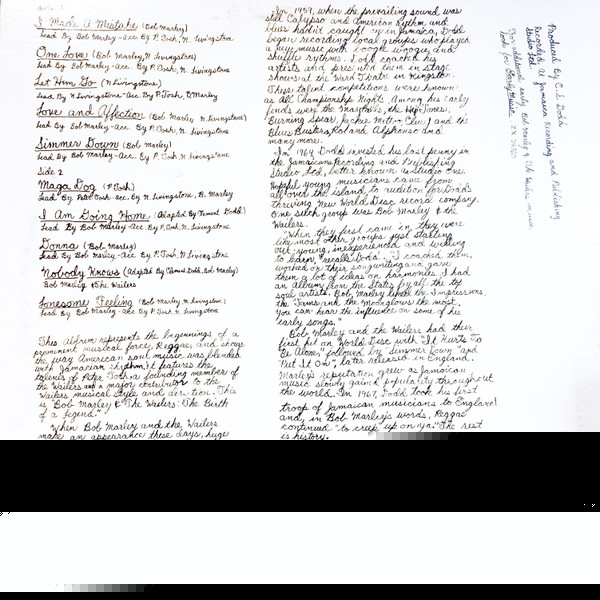 I Made A Mistake (Bob Marley)
Lead By Bob Marley-Acc. By P. Tosh, N. Livingstone
One Love (Bob Marley, N. Livingstone)
Lead By Bob Marley-Acc. By P. Tosh, N. Livingstone
Let Him Go (N. Livingstone)
Lead By N. Livingstone-Acc. By P. Tosh, R. Marley
Love and Affection (Bob Marley N. Livingstone)
Lead By Bob Marley-Acc. By P. Tosh, N. Livingstone
Simmer Down (Bob Marley)
Lead By Bob Marley-Acc. By P. Tosh, N. Livingstone
Side 2
Maga Dog (P. Tosh)
Lead By Peter Tosh-acc. by N. Livingstone, B. Marley
I Am Going Home (Adapted By Clement Dodd)
Lead By Bob Marley-Acc. By P. Tosh, N. Livingstone
Donna (Bob Marley)
Lead By Bob Marley-Acc. By P. Tosh, N. Livingstone
Nobody Knows (Adapted By Clement Dodd, Bob Marley)
Bob Marley & The Wailers
Lonesome Feeling (Bob Marley N. Livingstone)
Lead By Bob Marley-Acc. By P. Tosh, N. Livingstone
This album represents the beginnings of a
prominent musical force, Reggae, and shows
the way American soul music was blended
with Jamaican rhythm. It features the
talents of Peter Tosh-a founding member of
the Wailers and a major contributor to the
Wailers musical style and direction. This
is "Bob Marley & The Wailers: The Birth
of a legend."
When Bob Marley and the Wailers
make an appearance these days, huge
In 1959, when the prevailing sound was
still Calypso and American Rhythm and
blues habit caught up in Jamaica, Dodd
began recording local groups who played
a new music with boogie woogie and
shuffle rhythms. Dodd coached his
artists and presented them in stage
shows at the Ward Theatre in Kingston.
These talent competitions were known
as All Championship Nights. Among his early
finds were the Maytals, the HepTones,
Burning Spear, Jackie Mittoo, Clue J and the
Blues Busters, Roland Alphonso and
many more.
In 1964 Dodd invested his last penny in
the Jamaica Recording and Publishing
Studio Ltd., better known as Studio One.
Hopeful young musicians came from
all over the island to audition for Dodd's
thriving New World Disc record company.
One such group was Bob Marley & the
Wailers.
"When they first came in, they were
like most other groups just starting
out: young, inexperienced and willing
to learn," recalls Dodd. "I coached them,
worked on their songwriting and gave
them a lot of ideas on harmonies. I had
an album from the States by all the top
soul artists. Bob Marley liked the Impressions,
the Tams and the Moonglows the most.
You can hear the influence on some of his
early songs."
Bob Marley and the Wailers had their
first hit on World Disc with "It Hurts To
Be Alone," followed by "Simmer Down" and
"Put It On", later released in England.
Marley's reputation grew as Jamaican
music slowly gained popularity throughout
the world. In 1967, Dodd took his first
troop of Jamaican musicians to England
and, in Bob Marley's words, Reggae
continued "to creep up on ya." The rest
is history.
Produced By C.S. Dodd
Recorded At Jamaica Recording and Publishing
Studio Ltd.
For additional early Bob Marley & The Wailers music
look for Early Music